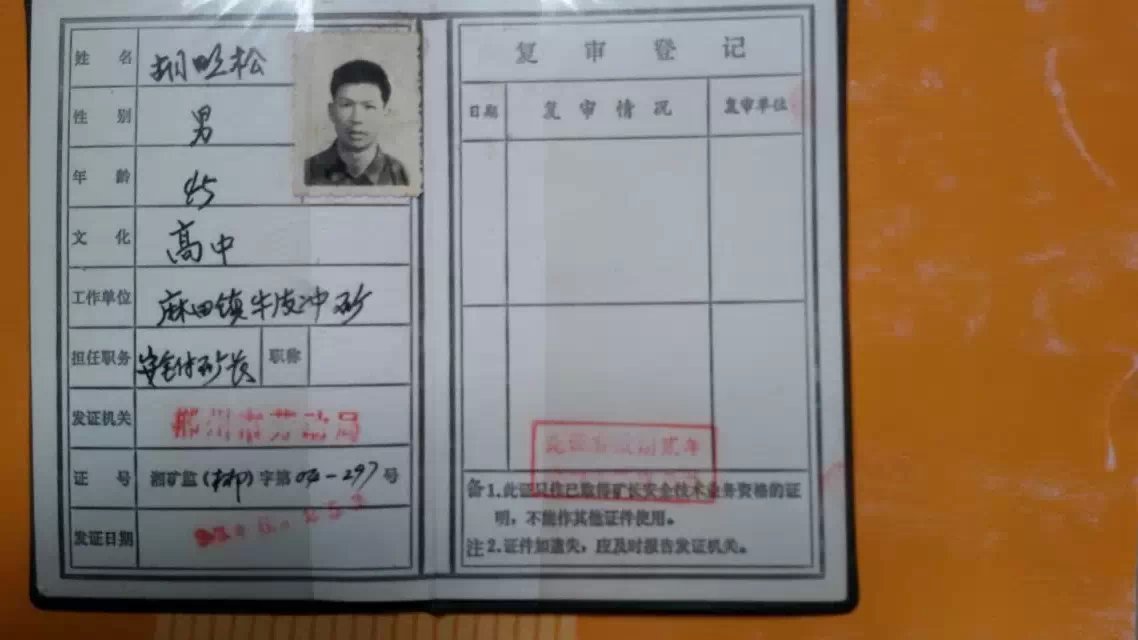 姓名 胡明松
性别 男
年龄 45
文化 高中
工作单位 麻田镇牛皮冲矿
担任职务 安全付矿长 职称
发证机关
证号 湘矿监(郴)字第04-297号
发证日期
复审登记
日期 复审情况 复审单位
备 1.此证只按已取得矿长安全技术业务资格的证
明,不能作其他证件使用。
注 2.证件如遗失,应及时报告发证机关。